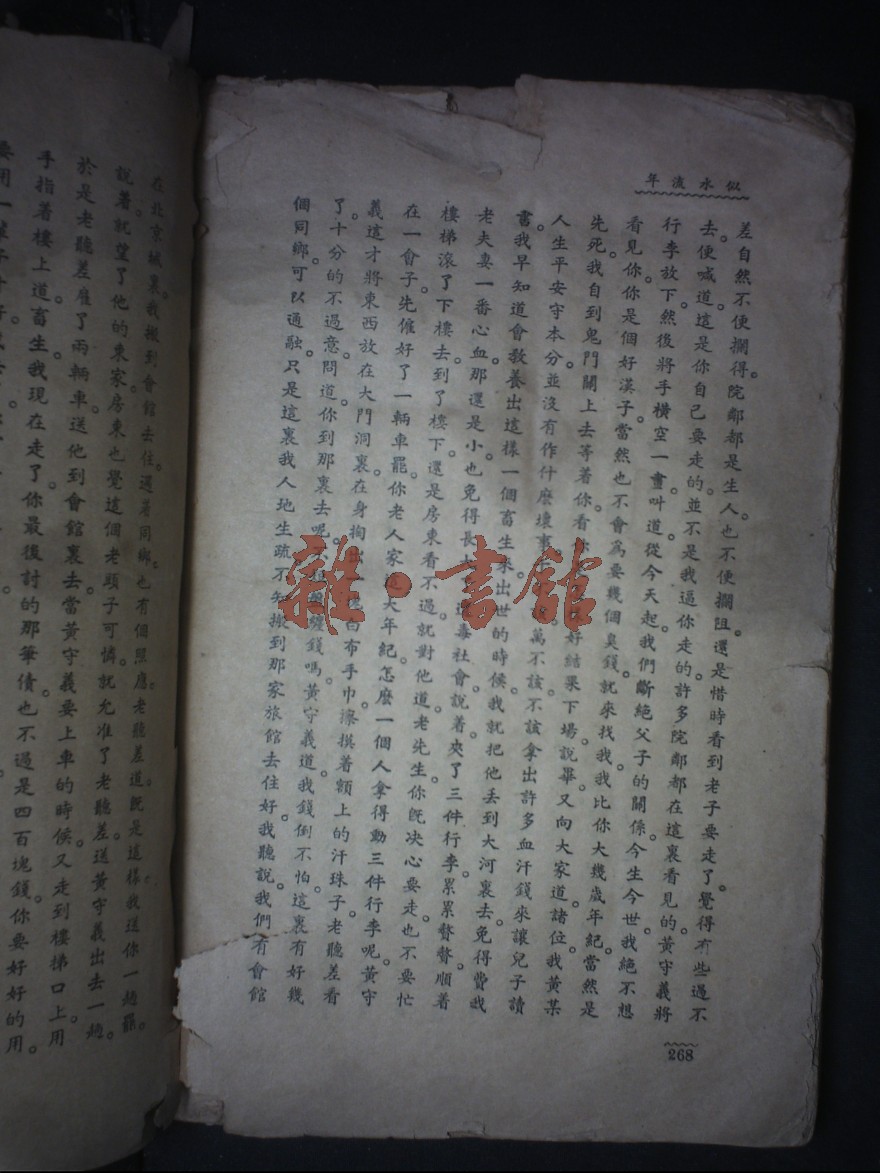 似水流年
差自然不便攔得。院鄰都是生人。也不便攔阻。還是惜時看到老子要走了。覺得有些過不
去。便喊道這是你自己要走的。並不是我逼你走的。許多院鄰都在這裏看見的。黃守義將
行李放下。然後將手橫空一畫叫道。從今天起。我們斷絕父子的關係。今生今世。我絕不想
看見你。你是個好漢子。當然也不會為要幾個臭錢。就來找我。我比你大幾歲年紀。當然是
先死。我自到鬼門關上去等着你。看好結果下場。說畢。又向大家道。諸位。我黃某
人生平安守本分。並沒有作什麼壞事萬不該。不該拿出許多血汗錢來。讓兒子讀
書。我早知道會教養出這樣一個畜生來。出世的時候。我就把他丟到大河裏去。免得費我
老夫妻一番心血。那還是小。也免得長毒社會。說着。夾了三件行李。累累贅贅。順着
樓梯滾了下樓去。到了樓下。還是房東看不過。就對他道。老先生。你旣决心要走。也不要忙
在一會子。先僱好了一輛車罷。你老人家這大年紀。怎麼一個人拿得動三件行李呢。黃守
義這才將東西放在大門洞裏。在身白布手巾。擦摸着額上的汗珠子。老聽差看
了。十分的不過意。問道。你到那裏去呢。不錢嗎。黃守義道。我錢倒不怕。這裏有好幾
個同鄉。可以通融。只是這裏我人地生疏。不知搬到那家旅館去住好。我聽說。我們有會館
268
在北京城裏。我搬到會館去住。遇着同鄉。也有個照應。老聽差道。旣是這樣。我送你一趟罷。
說着。就望了他的東家。房東也覺這個老頭子可憐。就允准了老聽差送黃守義出去一趟。
於是老聽差雇了兩輛車。送他到會館裏去。當黃守義要上車的時候。又走到樓梯口上。用
手指着樓上道。畜生。我現在走了。你最後討的那筆債。也不過是四百塊錢。你要好好的用
雜·書館